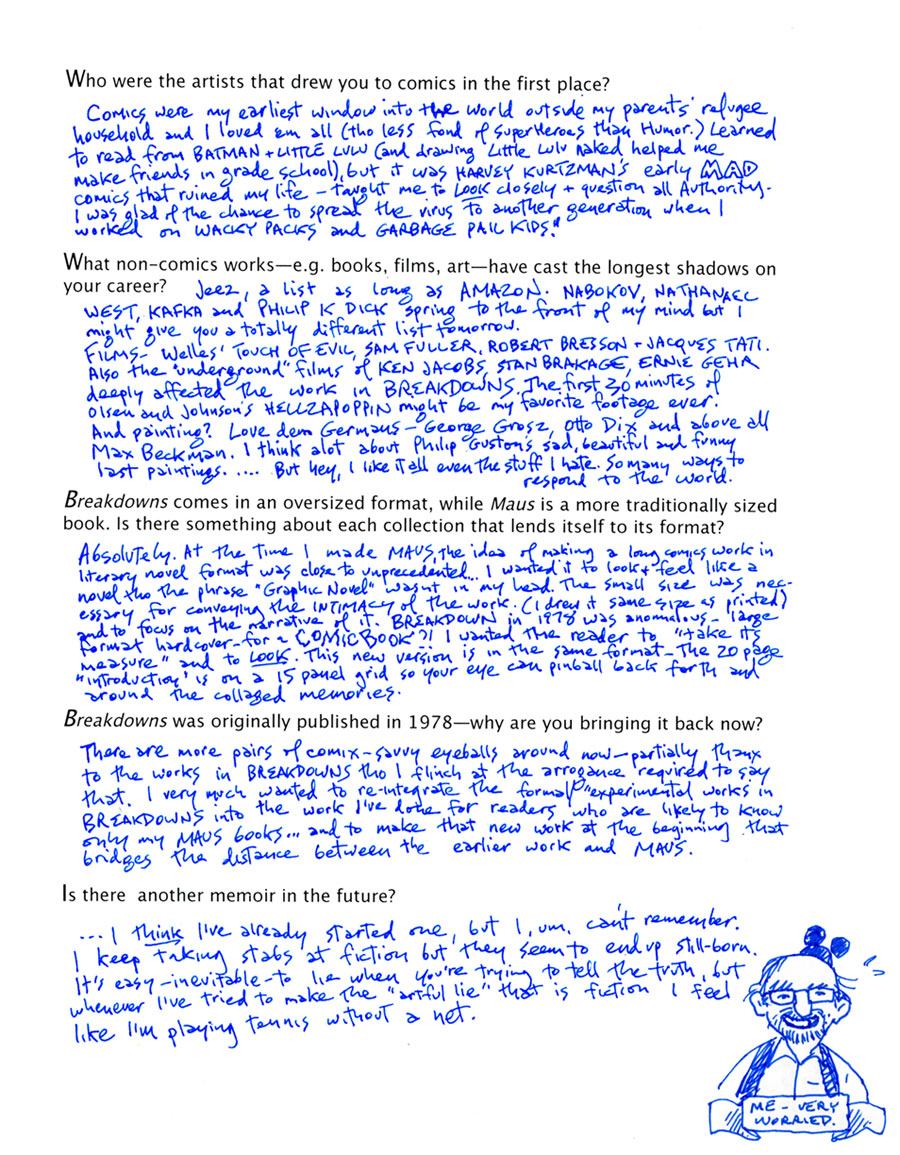 Who were the artists that drew you to comics in the first place?
Comics were my earliest window into the world outside my parents' refugee
household and I loved em all (tho less fond of SuperHeroes than Humor.) Learned
to read from BATMAN + LITTLE LULU (and drawing Little Lulu naked helped me
make friends in grade school), but it was HARVEY KURTZMAN'S early MAD
comics that ruined my life - taught me to LOOK closely + question all Authority.
I was glad of the chance to spread the virus to another generation when I
worked on WACKY PACKS and GARBAGE PAIL KIDS."
What non-comics works—e.g. books, films, art—have cast the longest shadows on
your career? Jeez, a list as long as AMAZON. NABOKOV, NATHANAEL
WEST, KAFKA and PHILIP K DICK spring to the front of my mind but I
might give you a totally different list tomorrow.
FILMS- Welles' TOUCH OF EVIL, SAM FULLER, ROBERT BRESSON + JACQUES TATI.
Also the "underground" films of KEN JACOBS, STAN BRAKAGE, ERNIE GEHR
deeply affected the work in BREAKDOWNS. The first 30 minutes of
Olsen and Johnson's HELLZAPOPPIN might be my favorite footage ever.
And painting? Love dem Germans - George Grosz, Otto Dix and above all
Max Beckman. I think alot about Philip Guston's sad, beautiful and funny
last paintings. .... But hey, I like it all even the stuff I hate. So many ways to
respond to the world.
Breakdowns comes in an oversized format, while Maus is a more traditionally sized
book. Is there something about each collection that lends itself to its format?
Absolutely. At the time I made MAUS, the idea of making a long comics work in
literary novel format was close to unprecedented... I wanted it to look + feel like a
novel tho the phrase "Graphic Novel" wasn't in my head. The small size was nec-
essary for conveying the INTIMACY of the work. (I drew it same size as printed)
and to focus on the narrative of it. BREAKDOWN in 1978 was anomalous - "large
format hardcover - for a COMIC BOOK"?! I wanted the reader to "take its
measure" and to LOOK. This new version is in the same format - The 20 page
"introduction" is on a 15 panel grid so your eye can pinball back forth and
around the collaged memories.
Breakdowns was originally published in 1978—why are you bringing it back now?
There are more pairs of comix-savvy eyeballs around now - partially thanx
to the works in BREAKDOWNS tho I flinch at the arrogance required to say
that. I very much wanted to re-integrate the formal "experimental works in
BREAKDOWNS into the work I've done for readers who are likely to know
only my MAUS books... and to make that new work at the beginning that
bridges the distance between the earlier work and MAUS.
Is there another memoir in the future?
...I think I've already started one, but I, um, can't remember.
I keep taking stabs at fiction but they seem to end up still-born.
It's easy - inevitable - to lie when you're trying to tell the truth, but
whenever I've tried to make the "artful lie" that is fiction I feel
like I'm playing tennis without a net.
ME - VERY
WORRIED.